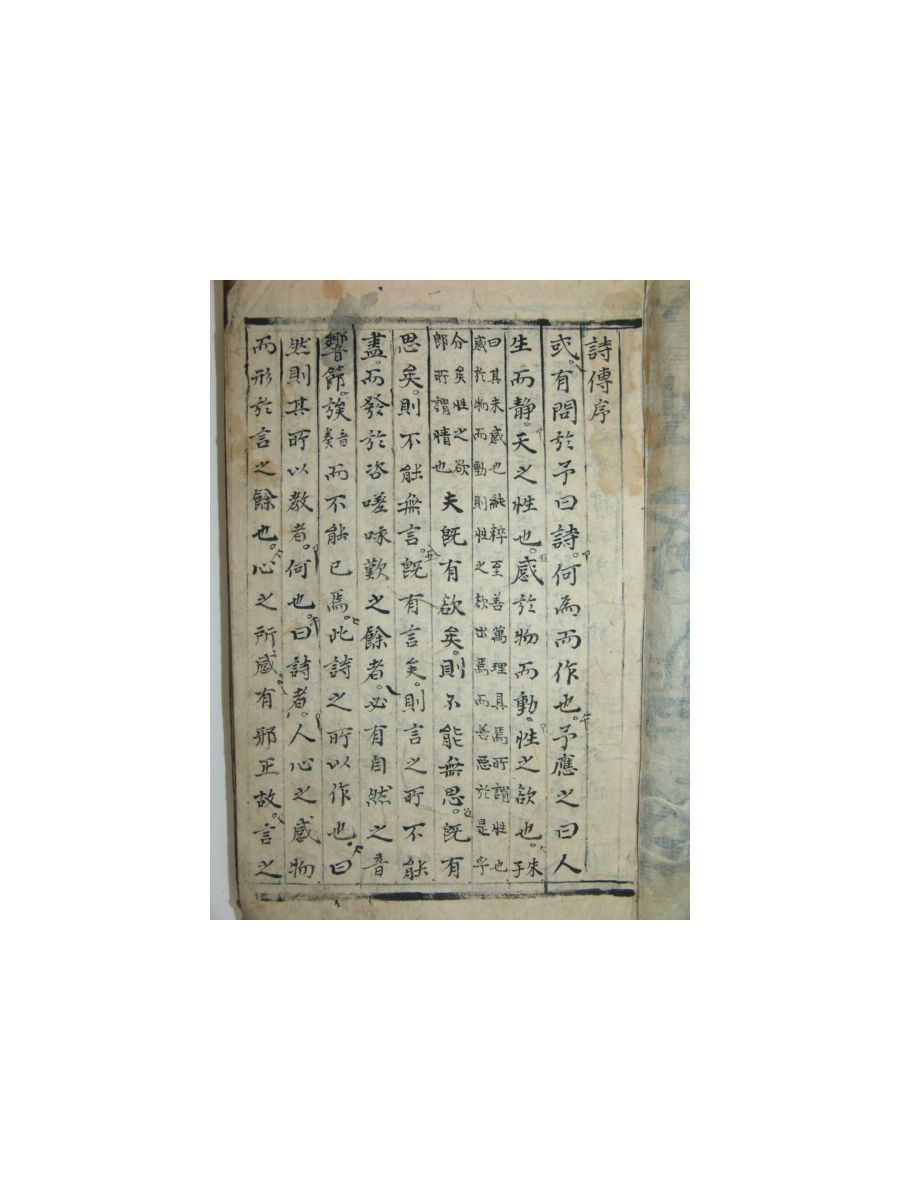 詩傳序
或有問於予曰詩何爲而作也予應之曰人
生而靜天之性也感於物而動性之欲也朱子
曰其未感也純粹至善萬理具焉所謂性也
感於物而動則性之欲出焉而善惡於是乎
分矣性之欲
卽所謂情也夫旣有欲矣則不能無思旣有
思矣則不能無言旣有言矣則言之所不能
盡而發於咨嗟咏歎之餘者必有自然之音
響節族音奏而不能已焉此詩之所以作也曰
然則其所以敎者何也曰詩者人心之感物
而形於言之餘也心之所感有邪正故言之